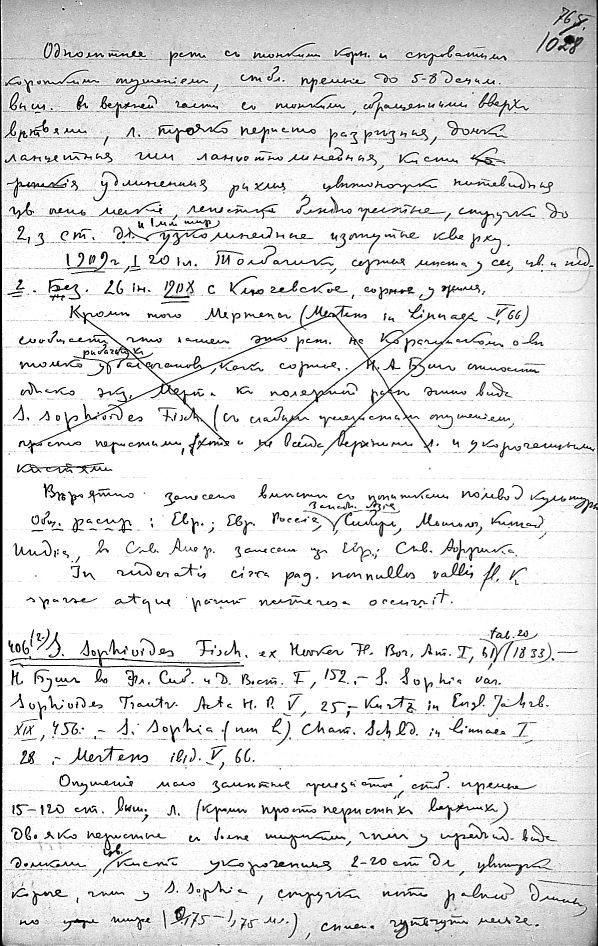 765.
1028
Однолетнее раст. съ тонкимъ корн. и сероватымъ
короткимъ опушеніемъ, стбл. прямые до 5-8 децим.
выш. въ верхней части съ тонкими, обращенными вверхъ
вѣтвями, л. трояко перисто разрѣзныя, дольки
ланцетныя или ланцетнолинейныя, кисти
удлиненныя рыхлыя, цвѣтоножки нитевидныя
цв. очень мелкіе, лепестки блѣдножелтые, стручки до
2,3 ст. дл. и 1 мм шир. узколинейные изогнутые кверху.
1909 г. I 20 іл. Толбачикъ, сорныя мѣста у сел, цв. и
2. Без. 26 ін. 1908 с Ключевское, сорное у жилья.
Кроме того Мертенсъ (Mertens in Linnaea V, 66)
сообщаетъ что нашелъ это раст. на Карагинскомъ о-ве
только у рыбачьихъ балагановъ, какъ сорное. Н. А. Бушъ относитъ
однако экз. Мерт. къ полярной расе этого вида
S. sophioides Fisch (съ слабымъ железистымъ опушеніемъ,
просто перистыми, хотя и не всегда верхними л. и укороченными
кистями
Вѣроятно занесено вмѣсте съ попытками полевод. культуры
Общ. распр.: Евр.; Евр. Россія, Западн. Азія, Сибирь, Монголія, Китай,
Индія, въ Сев. Амер. занесен изъ Евр.; Сев. Африка.
In ruderatis circa pag. nonnullos vallis fl. K.
sparse atque parum numerosa occurrit.
406 (2) S. Sophioides Fisch. ex Hooker Fl. Bor. Am. I, 61, tab. 20 (1833). —
Н. Бушъ во Фл. Сиб. и Д. Вост. I, 152. — S. Sophia var.
Sophioides Trautv. Acta H. P. V, 25, — Kurtz in Engl. Jahrb.
XIX, 456. — S. Sophia (non L) Cham. Schld. in Linnaea I,
28. — Mertens ibid. V, 66.
Опушеніе мало заметное железистое, стб. прямые
15-120 ст. выш., л. (кроме простоперистыхъ верхнихъ)
двояко перистые съ более широкими, чемъ у предыд. вида
дольками, цв. кисть укороченная 2-20 ст дл, цвѣтки
короче, чемъ у S. Sophia, стручки почти равной длины
но уже шире (0,75-1,75 мм.), семена чуть чуть мельче.